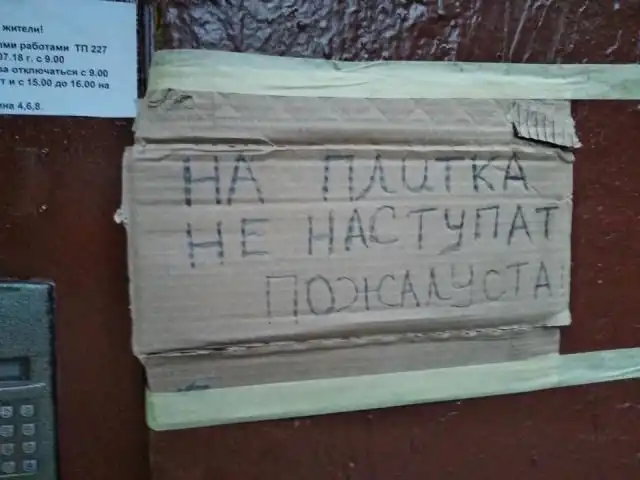 жители!
ми работами ТП 227
07.18 г. с 9.00
отключаться с 9.00
и с 15.00 до 16.00 на
4,6,8.
НА ПЛИТКА
НЕ НАСТУПАТ
ПОЖАЛУСТА!